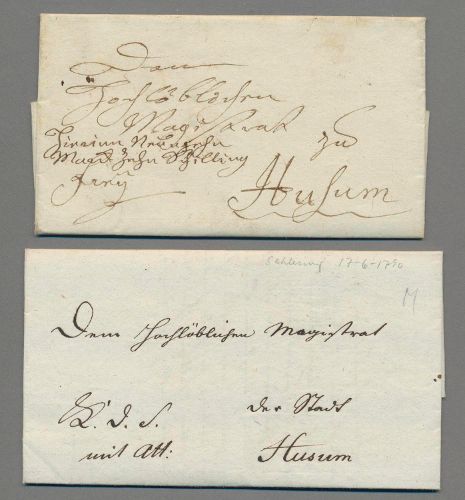 Dem
Hochlöblichen
Magistrat
zu
Hierinn Neunzehn
Mark Zehn Schilling
frey
Husum
Schleswig 17-6-1790
M
Dem Hochlöblichen Magistrat
K. D. S.
der Stadt
mit Att:
Husum